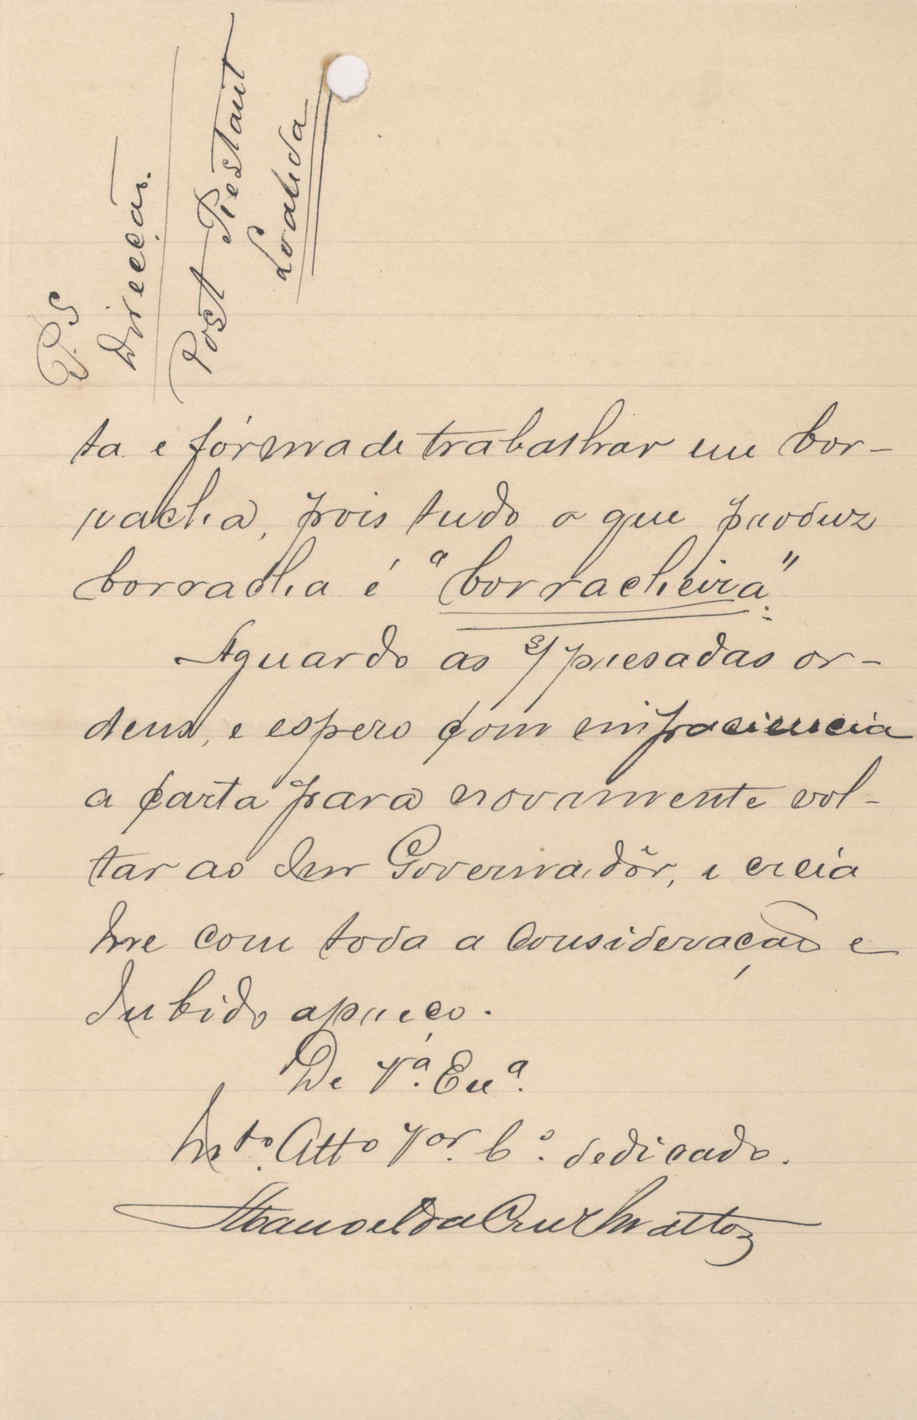 P.S
Direcção.
Post Restant
Loanda
ta e fórma de trabalhar em bor-
racha, pois tudo o que produz
borracha é "borracheira".
Aguardo as s/ presadas or-
dens, e espero com impaciencia
a carta para novamente vol-
tar ao Snr Governadôr, e creia
me com toda a consideração e
subido apreço.
De V.ª Ex.ª
M.to Att.o V.or C.o dedicado.
Manoel da Cruz Mattos